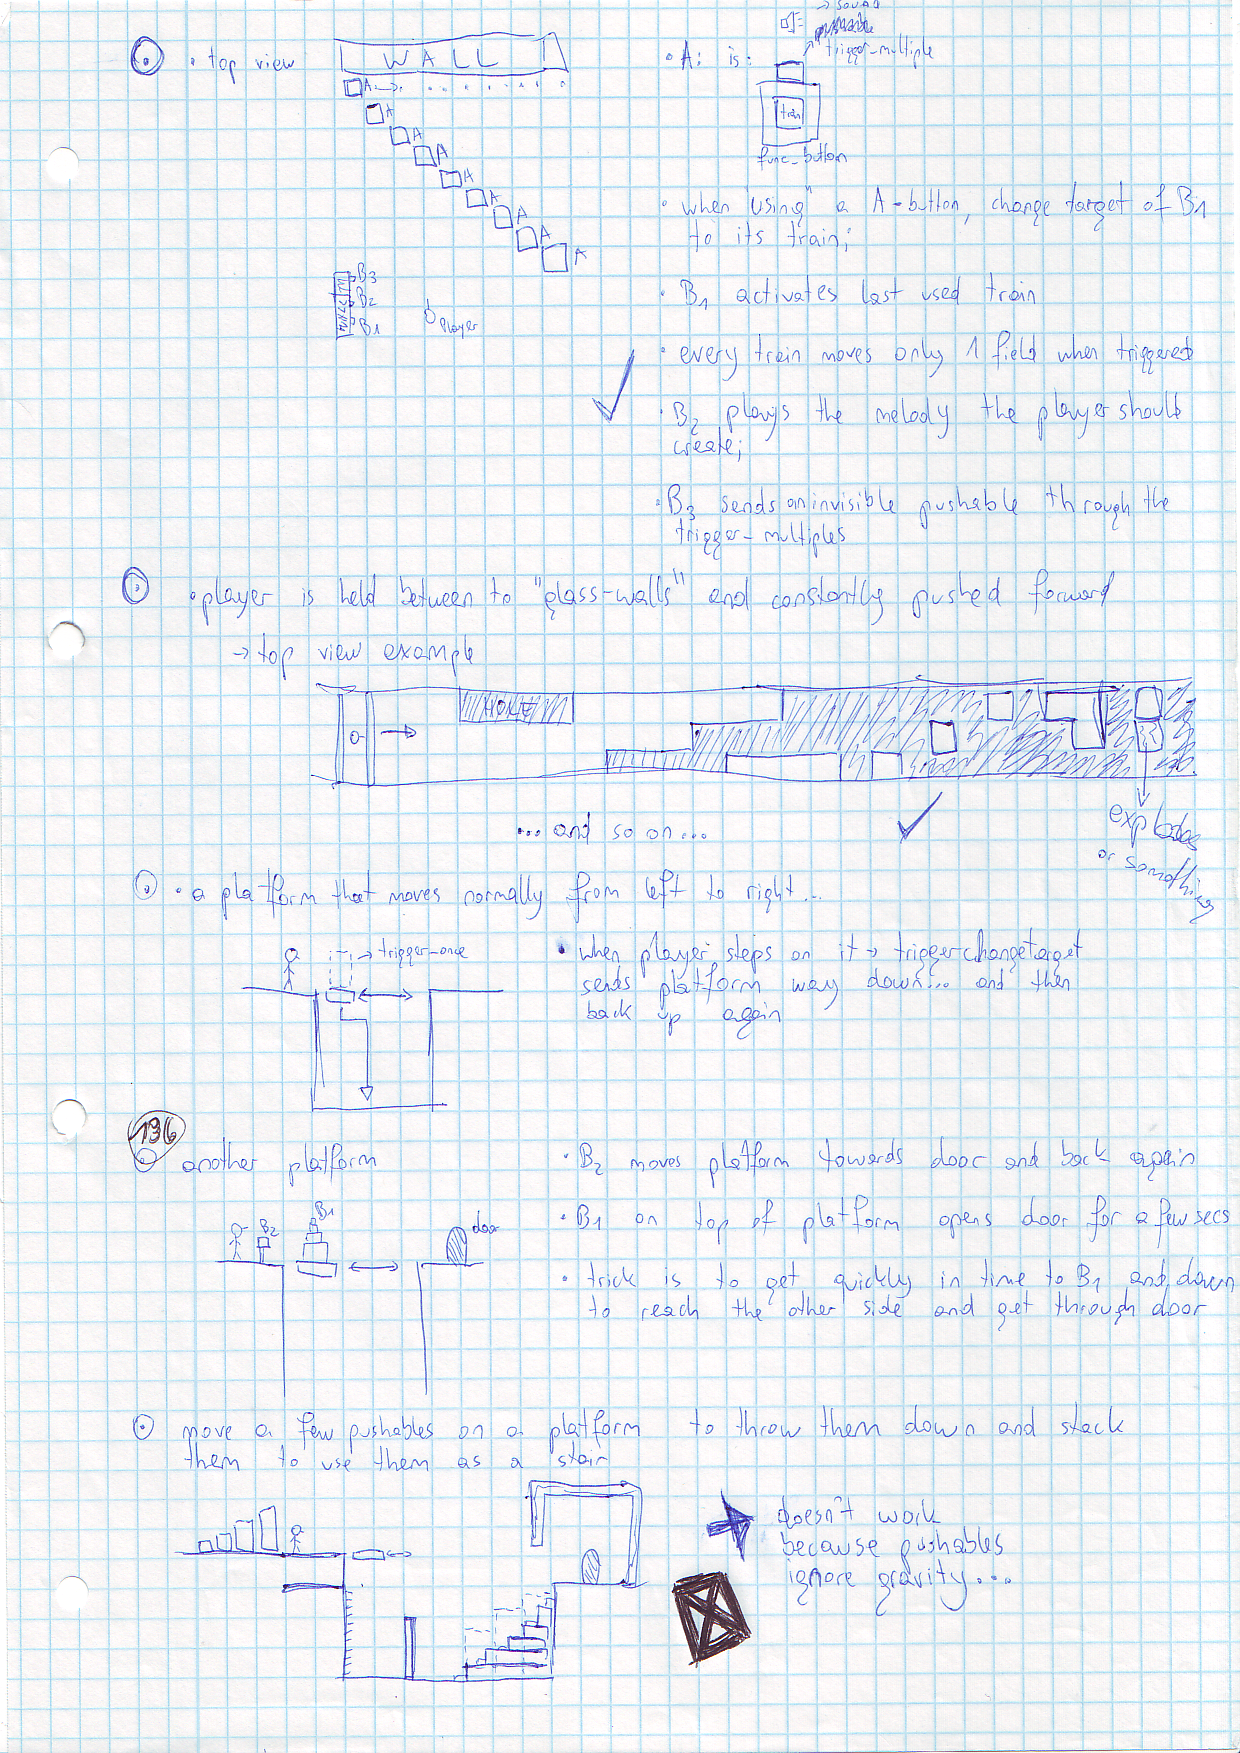 • top view
WALL
A
A
A
A
A
A
A
A
A
B3
B2
B1
Player
• A: is:
→ sound
pushable
trigger-multiple
train
func_button
• when "using" a A-button, change target of B1
to its train;
• B1 activates last used train
• every train moves only 1 field when triggered
• B2 plays the melody the player should
create;
• B3 sends an invisible pushable through the
trigger-multiples
• player is held between to "glass-walls" and constantly pushed forward
→ top view example
... and so on...
explodes
or somothing
• a platform that moves normally from left to right...
→ trigger-once
• when player steps on it → triggerchangetarget
sends platform way down... and then
back up again
136
another platform
B2
B1
door
• B2 moves platform towards door and back again
• B1 on top of platform opens door for a few secs
• trick is to get quickly in time to B1 and down
to reach the other side and get through door
move a few pushables on a platform to throw them down and stack
them to use them as a stair
doesn't work
because pushables
ignore gravity...